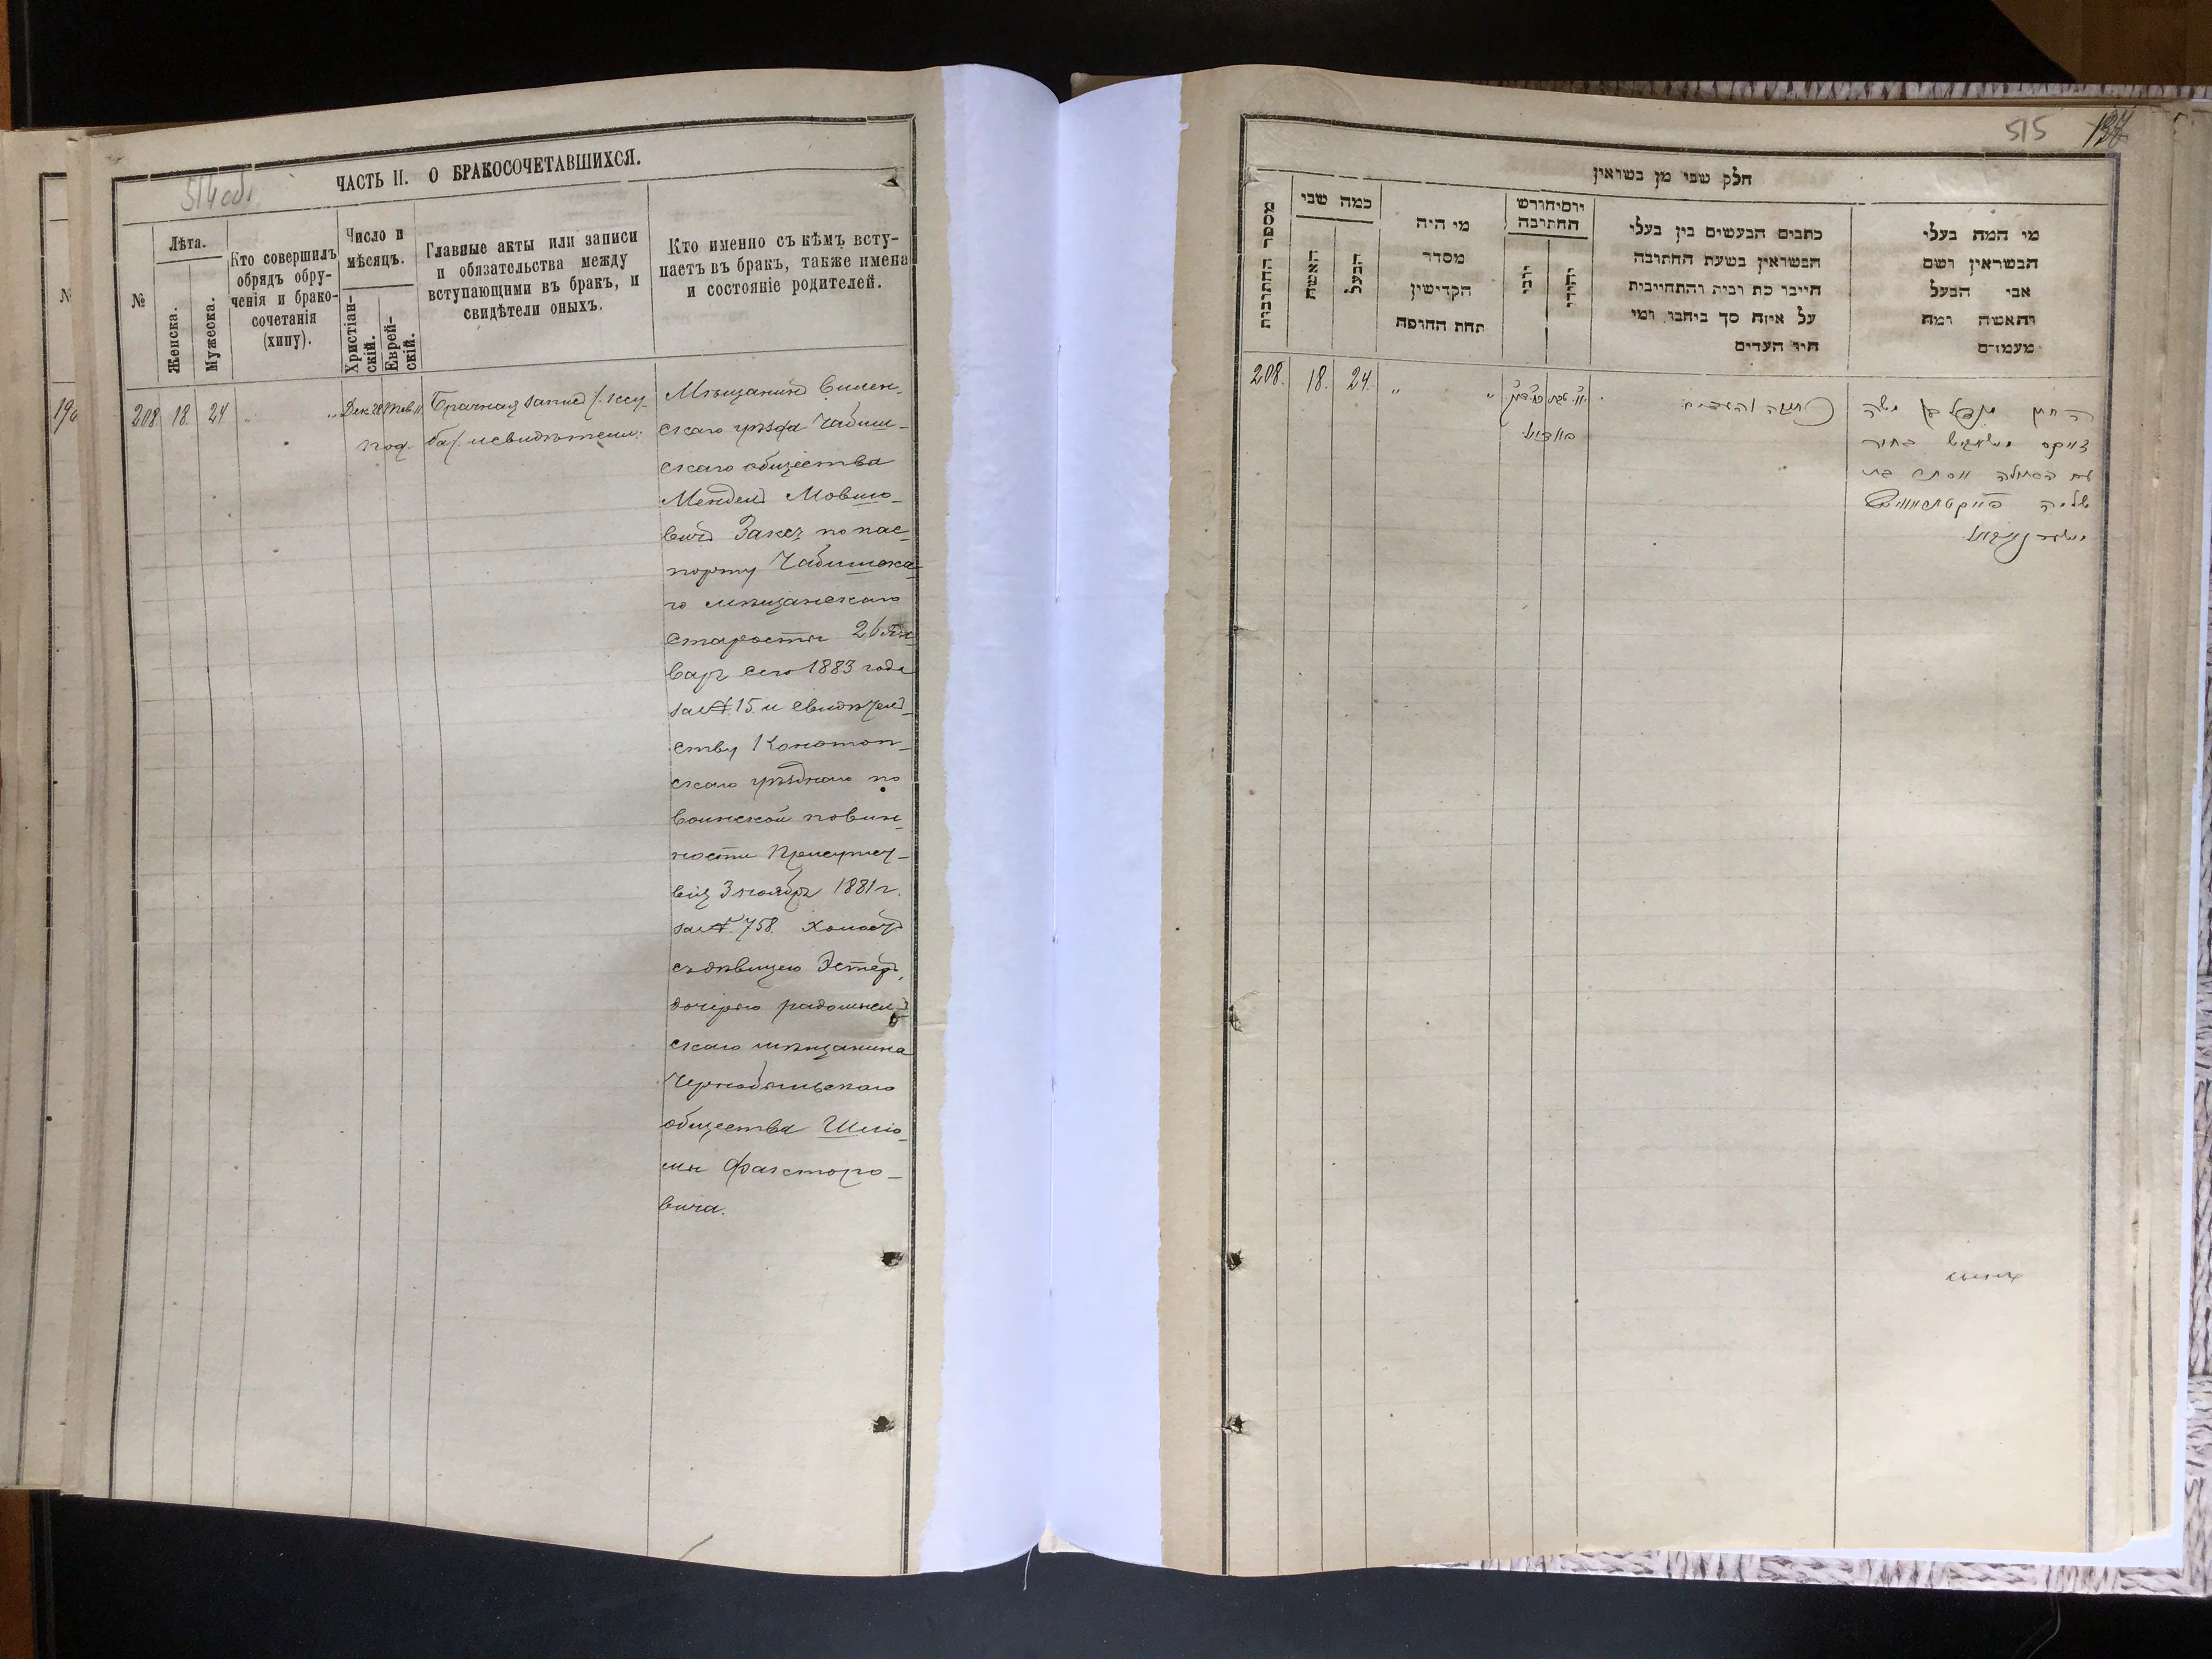 514 об.
ЧАСТЬ II. О БРАКОСОЧЕТАВШИХСЯ.
№
Лѣта.
Женска.
Мужеска.
Кто совершилъ
обрядъ обру-
ченія и брако-
сочетанія
(хипу).
Число и
мѣсяцъ.
Христіан-
скій.
Еврей-
скій.
Главные акты или записи
и обязательства между
вступающими въ бракъ, и
свидѣтели оныхъ.
Кто именно съ кѣмъ всту-
паетъ въ бракъ, также имена
и состояніе родителей.
208. 18. 24 " " Дек.
Брачная запись
и свидѣтели:
Мѣщанинъ Вилен-
скаго уѣзда Чабиш-
скаго общества
Мендель Мовшо-
вичъ Заксъ по пас-
порту Чабишска-
го мѣщанскаго
старосты 26 Ян-
варя сего 1883 года
за № 15. и свидѣтель-
ству Конотоп-
скаго уѣзднаго по
воинской повин-
ности Присутст-
вія 3 ноября 1881 г.
за № 758. холостъ
съ дѣвицею Эстеръ,
дочерью радомысль-
скаго мѣщанина
Чернобыльскаго
общества Шлio-
мы Факторо-
вича.
515 137
חלק שני מן נשואין
מספר החתונות
כמה שני
האשה
הבעל
מי היה
מסדר
הקדישין
תחת החופה
יום וחודש
החתונה
יוני
יהודי
כתבים הנעשים בין בעלי
הנשואין בשעת החתונה
חייבו כת ובית והתחייבות
על איזה סך ביחבו ומי
היו העדים
מי המה בעלי
הנשואין ושם
אבי הבעל
והאשה ומה
מעמדם
208. 18. 24. " "
כתובה והעדים
החתן מענדל בן משה
בחור
עם הבתולה אסתר בת
שלמה